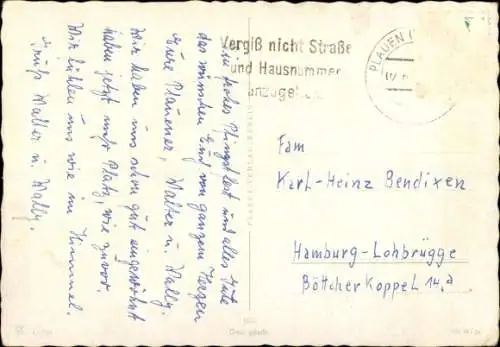 Ein frohes Pfingstfest und alles Gute
das wünschen Euch von ganzem Herzen
Eure Plauener, Walter u. Wally.
Wir haben uns schon gut eingewöhnt
haben jetzt mehr Platz, wie zuvor.
Wir fühlen uns wie im Himmel.
Gruß Walter u. Wally.
Vergiß nicht Straße
und Hausnummer
anzugeben
PLAUEN
Fam
Karl-Heinz Bendixen
Hamburg-Lohbrügge
Böttcher Koppel 14a